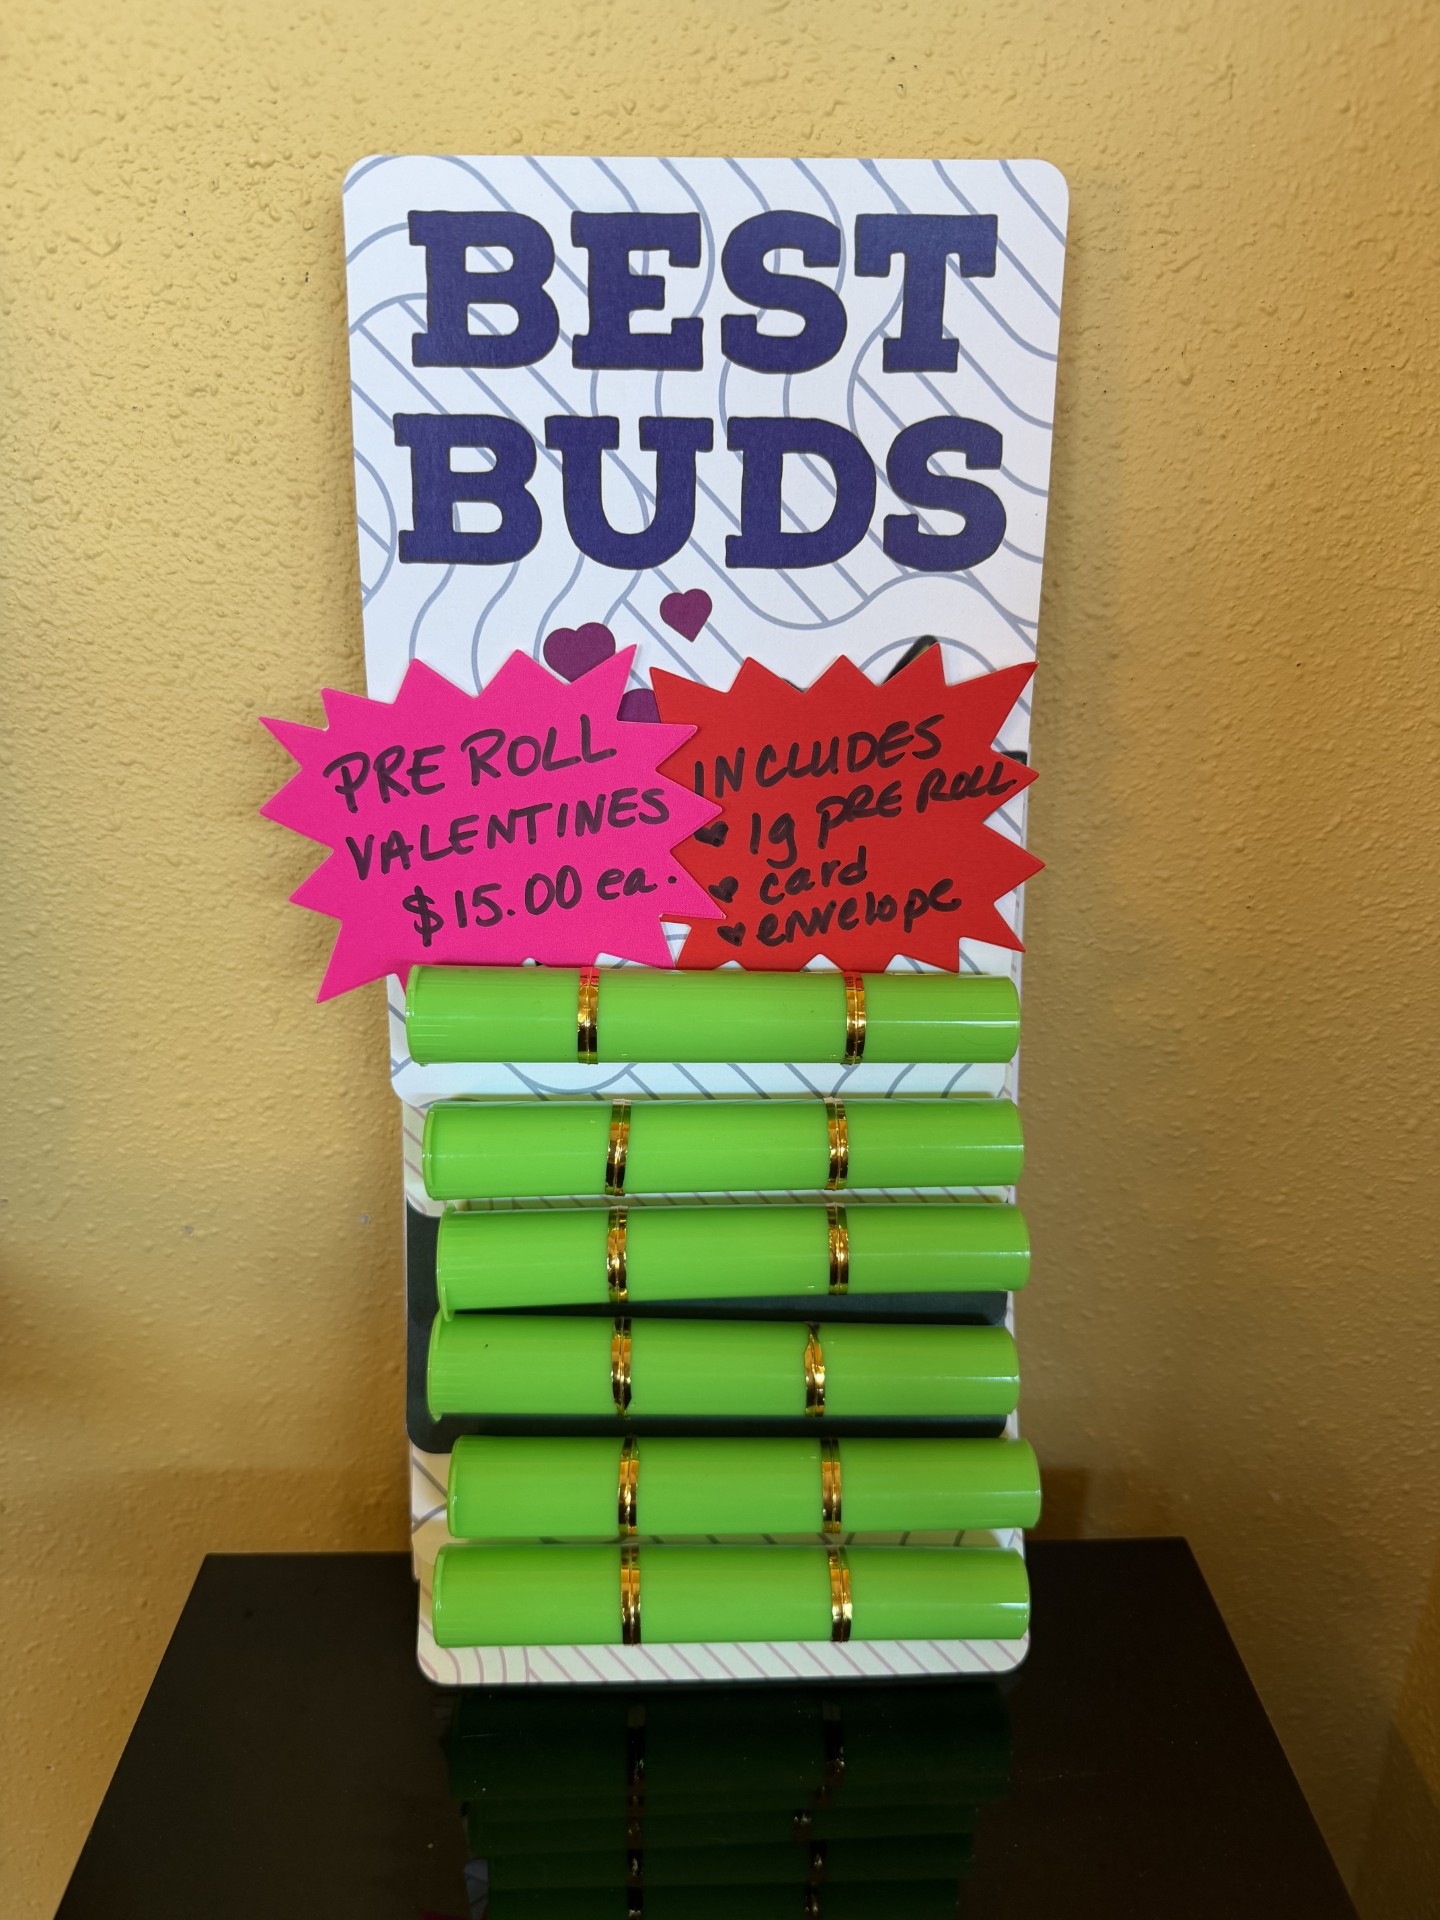 BEST
BUDS
PRE ROLL
VALENTINES
$15.00 ea.
INCLUDES
♥ 1g PRE ROLL
♥ card
♥ envelope